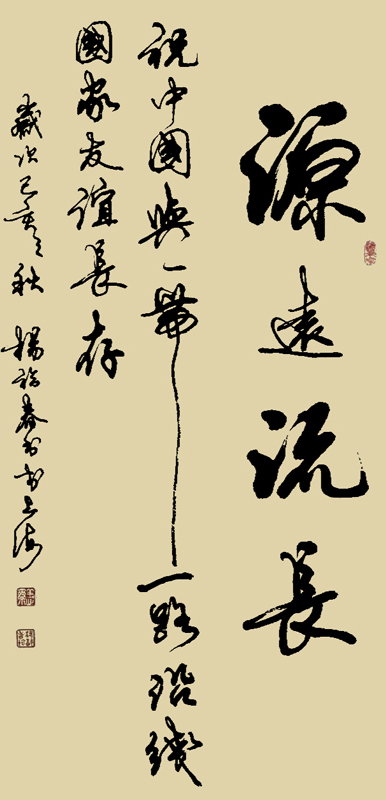 源遠流長
祝中國與一帶一路沿綫
國家友誼長存
歲次己亥之秋 楊春書於上海